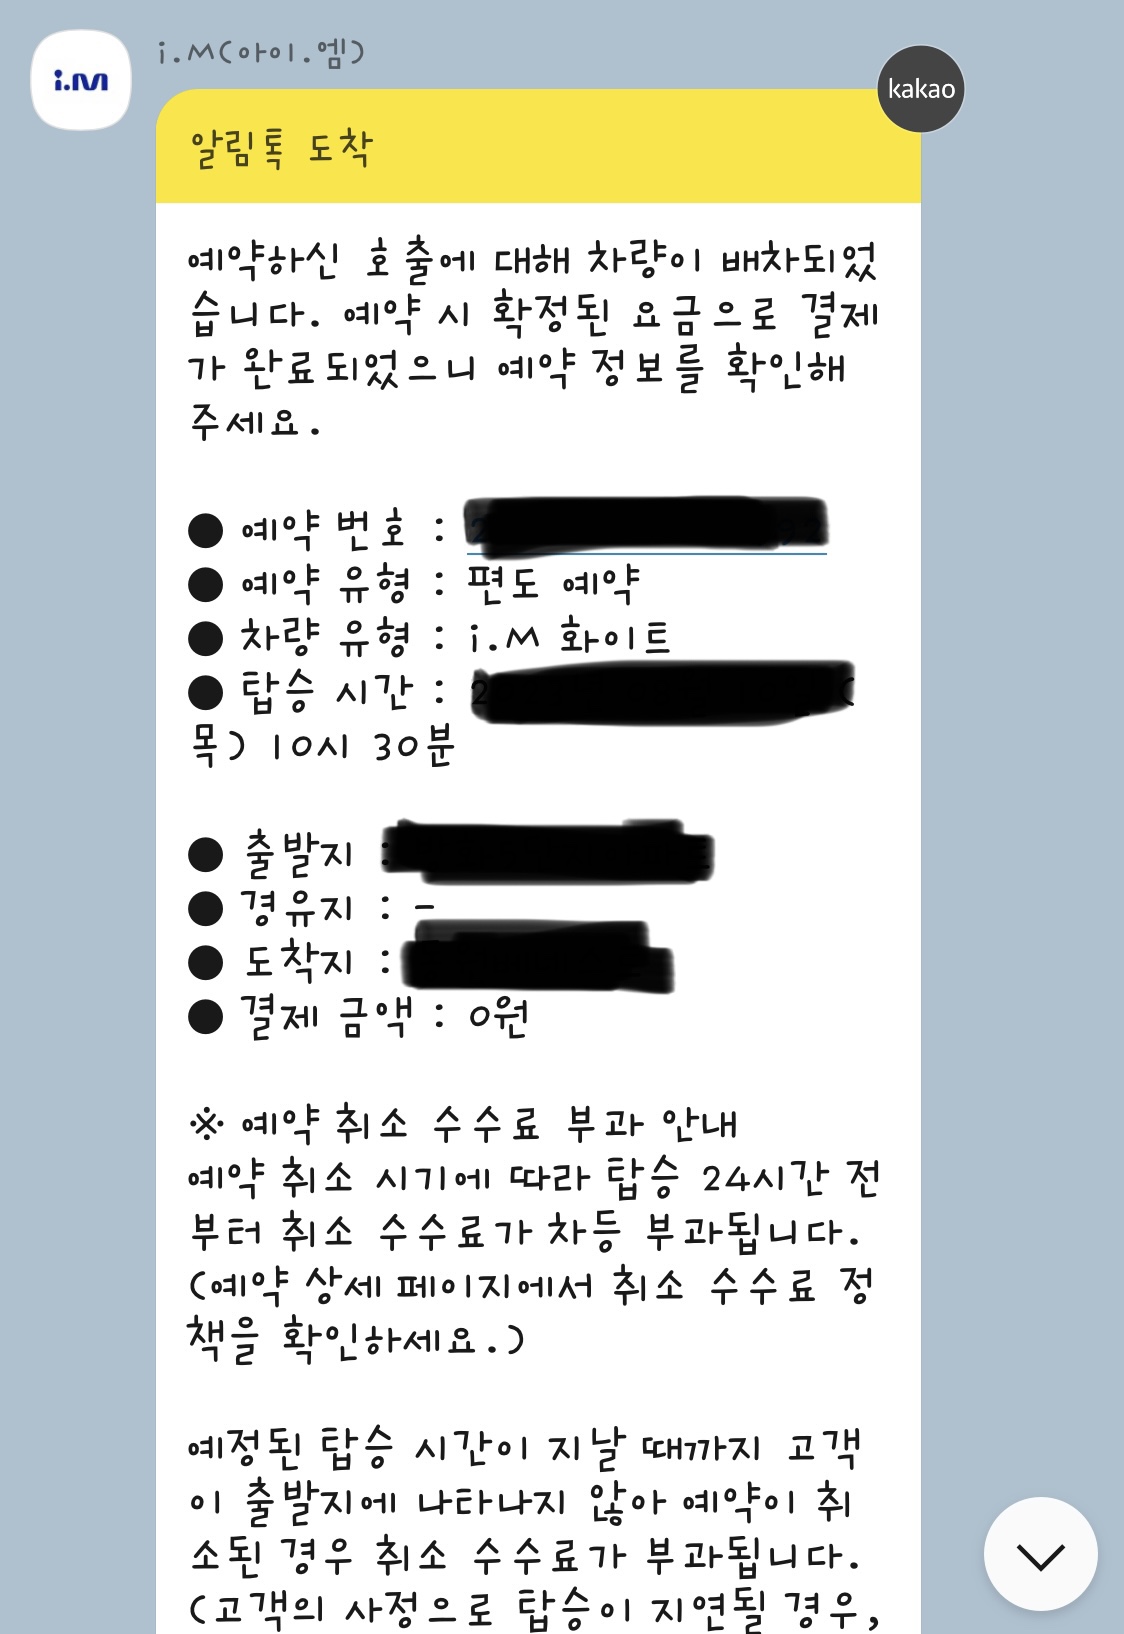 i.M
i.M(아이.엠)
kakao
알림톡 도착
예약하신 호출에 대해 차량이 배차되었
습니다. 예약 시 확정된 요금으로 결제
가 완료되었으니 예약 정보를 확인해
주세요.
● 예약 번호 :
● 예약 유형 : 편도 예약
● 차량 유형 : i.M 화이트
● 탑승 시간 : 2 (
목) 10시 30분
● 출발지 :
● 경유지 : -
● 도착지 :
● 결제 금액 : 0원
※ 예약 취소 수수료 부과 안내
예약 취소 시기에 따라 탑승 24시간 전
부터 취소 수수료가 차등 부과됩니다.
(예약 상세 페이지에서 취소 수수료 정
책을 확인하세요.)
예정된 탑승 시간이 지날 때까지 고객
이 출발지에 나타나지 않아 예약이 취
소된 경우 취소 수수료가 부과됩니다.
(고객의 사정으로 탑승이 지연될 경우,